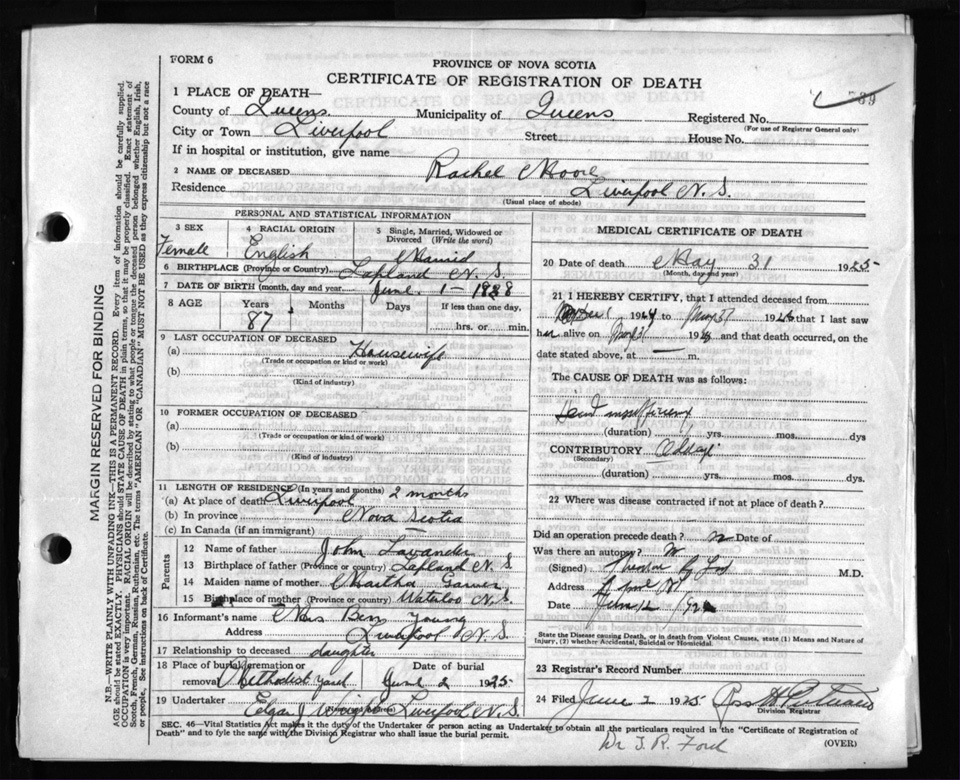 FORM 6
PROVINCE OF NOVA SCOTIA
CERTIFICATE OF REGISTRATION OF DEATH
1 PLACE OF DEATH—
County of Queens Municipality of Queens Registered No.
(For use of Registrar General only)
City or Town Liverpool Street House No.
If in hospital or institution, give name
2 NAME OF DECEASED Rachel Moore
Residence Liverpool N. S.
(Usual place of abode)
PERSONAL AND STATISTICAL INFORMATION
3 SEX
Female
4 RACIAL ORIGIN
English
5 Single, Married, Widowed or Divorced (Write the word)
6 BIRTHPLACE (Province or Country) Lapland N. S.
7 DATE OF BIRTH (month, day and year) June 1 -
8 AGE Years Months Days If less than one day,
87 hrs. or min.
9 LAST OCCUPATION OF DECEASED
(a) Housewife
(Trade or occupation or kind of work)
(b)
(Kind of industry)
10 FORMER OCCUPATION OF DECEASED
(a)
(Trade or occupation or kind of work)
(b)
(Kind of industry)
11 LENGTH OF RESIDENCE (In years and months) 2 months
(a) At place of death Liverpool
(b) In province Nova Scotia
(c) In Canada (if an immigrant)
Parents
12 Name of father John Lavender
13 Birthplace of father (Province or country) Lapland N. S.
14 Maiden name of mother Martha
15 Birthplace of mother (Province or country) Waterloo N. S.
16 Informant's name Mrs Benj Young
Address Liverpool N. S.
17 Relationship to deceased daughter
18 Place of burial, cremation or removal Methodist yard Date of burial June 2 1925
19 Undertaker Wright Liverpool N. S.
MEDICAL CERTIFICATE OF DEATH
20 Date of death May 31 1925
(Month, day and year)
21 I HEREBY CERTIFY, that I attended deceased from
1924 to May 31 192 that I last saw
her alive on May 31 192 and that death occurred, on the
date stated above, at — m.
The CAUSE OF DEATH was as follows:
(duration) yrs. mos. dys
CONTRIBUTORY
(Secondary)
(duration) yrs. mos. dys
22 Where was disease contracted if not at place of death?
Did an operation precede death? Date of
Was there an autopsy?
(Signed) M.D.
Address
Date June
State the Disease causing Death, or in death from Violent Causes, state (1) Means and Nature of Injury, (2) whether Accidental, Suicidal or Homicidal.
23 Registrar's Record Number
24 Filed June 1925
Division Registrar
SEC. 46—Vital Statistics Act makes it the duty of the Undertaker or person acting as Undertaker to obtain all the particulars required in the "Certificate of Registration of
Death" and to fyle the same with the Division Registrar who shall issue the burial permit.
(OVER)
Dr J. R. Ford
MARGIN RESERVED FOR BINDING
N.B.—WRITE PLAINLY WITH UNFADING INK—THIS IS A PERMANENT RECORD. Every item of information should be carefully supplied.
AGE should be stated EXACTLY. PHYSICIANS should STATE CAUSE OF DEATH in plain terms, so that it may be properly classified. Exact statement of
OCCUPATION is very important. RACIAL ORIGIN will be described by stating to what people or tongue the deceased person belonged whether English, Irish,
Scotch, French, German, Russian, Ruthenian, etc. The terms "AMERICAN" OR "CANADIAN" MUST NOT BE USED as they express citizenship but not a race
or people. See instructions on back of Certificate.